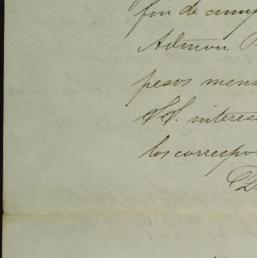 fin de cump
Admon
pesos mens
SS. interes
los correspo